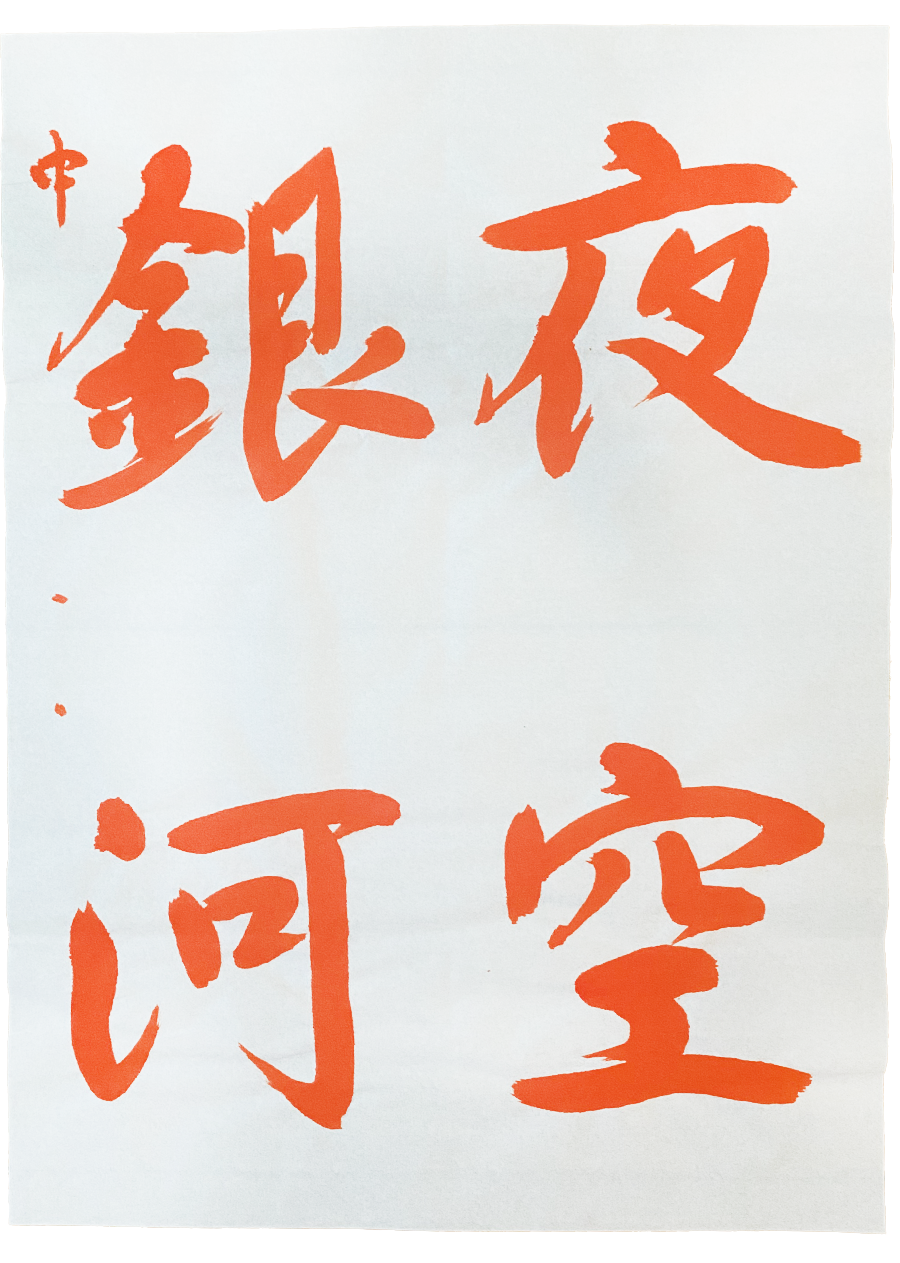 夜空
銀河
中